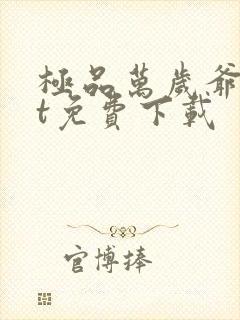 極品萬歲爺
t免費下載
官博捧